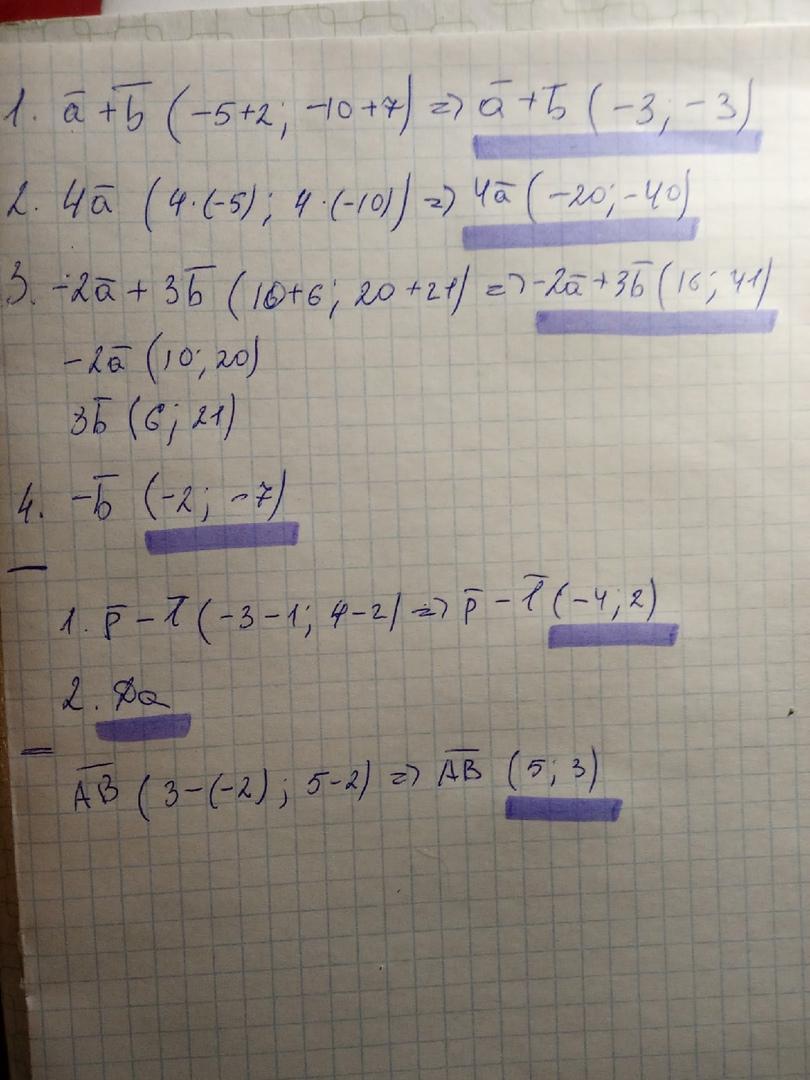 1. a̅ + b̅ (-5+2; -10+7) => a̅ + b̅ (-3; -3)
2. 4a̅ (4·(-5); 4·(-10)) => 4a̅ (-20; -40)
3. -2a̅ + 3b̅ (10+6; 20+21) => -2a̅ + 3b̅ (16; 41)
-2a̅ (10; 20)
3b̅ (6; 21)
4. -b̅ (-2; -7)
1. p̅ - l̅ (-3-1; 4-2) => p̅ - l̅ (-4; 2)
2. Да
A̅B̅ (3-(-2); 5-2) => A̅B̅ (5; 3)